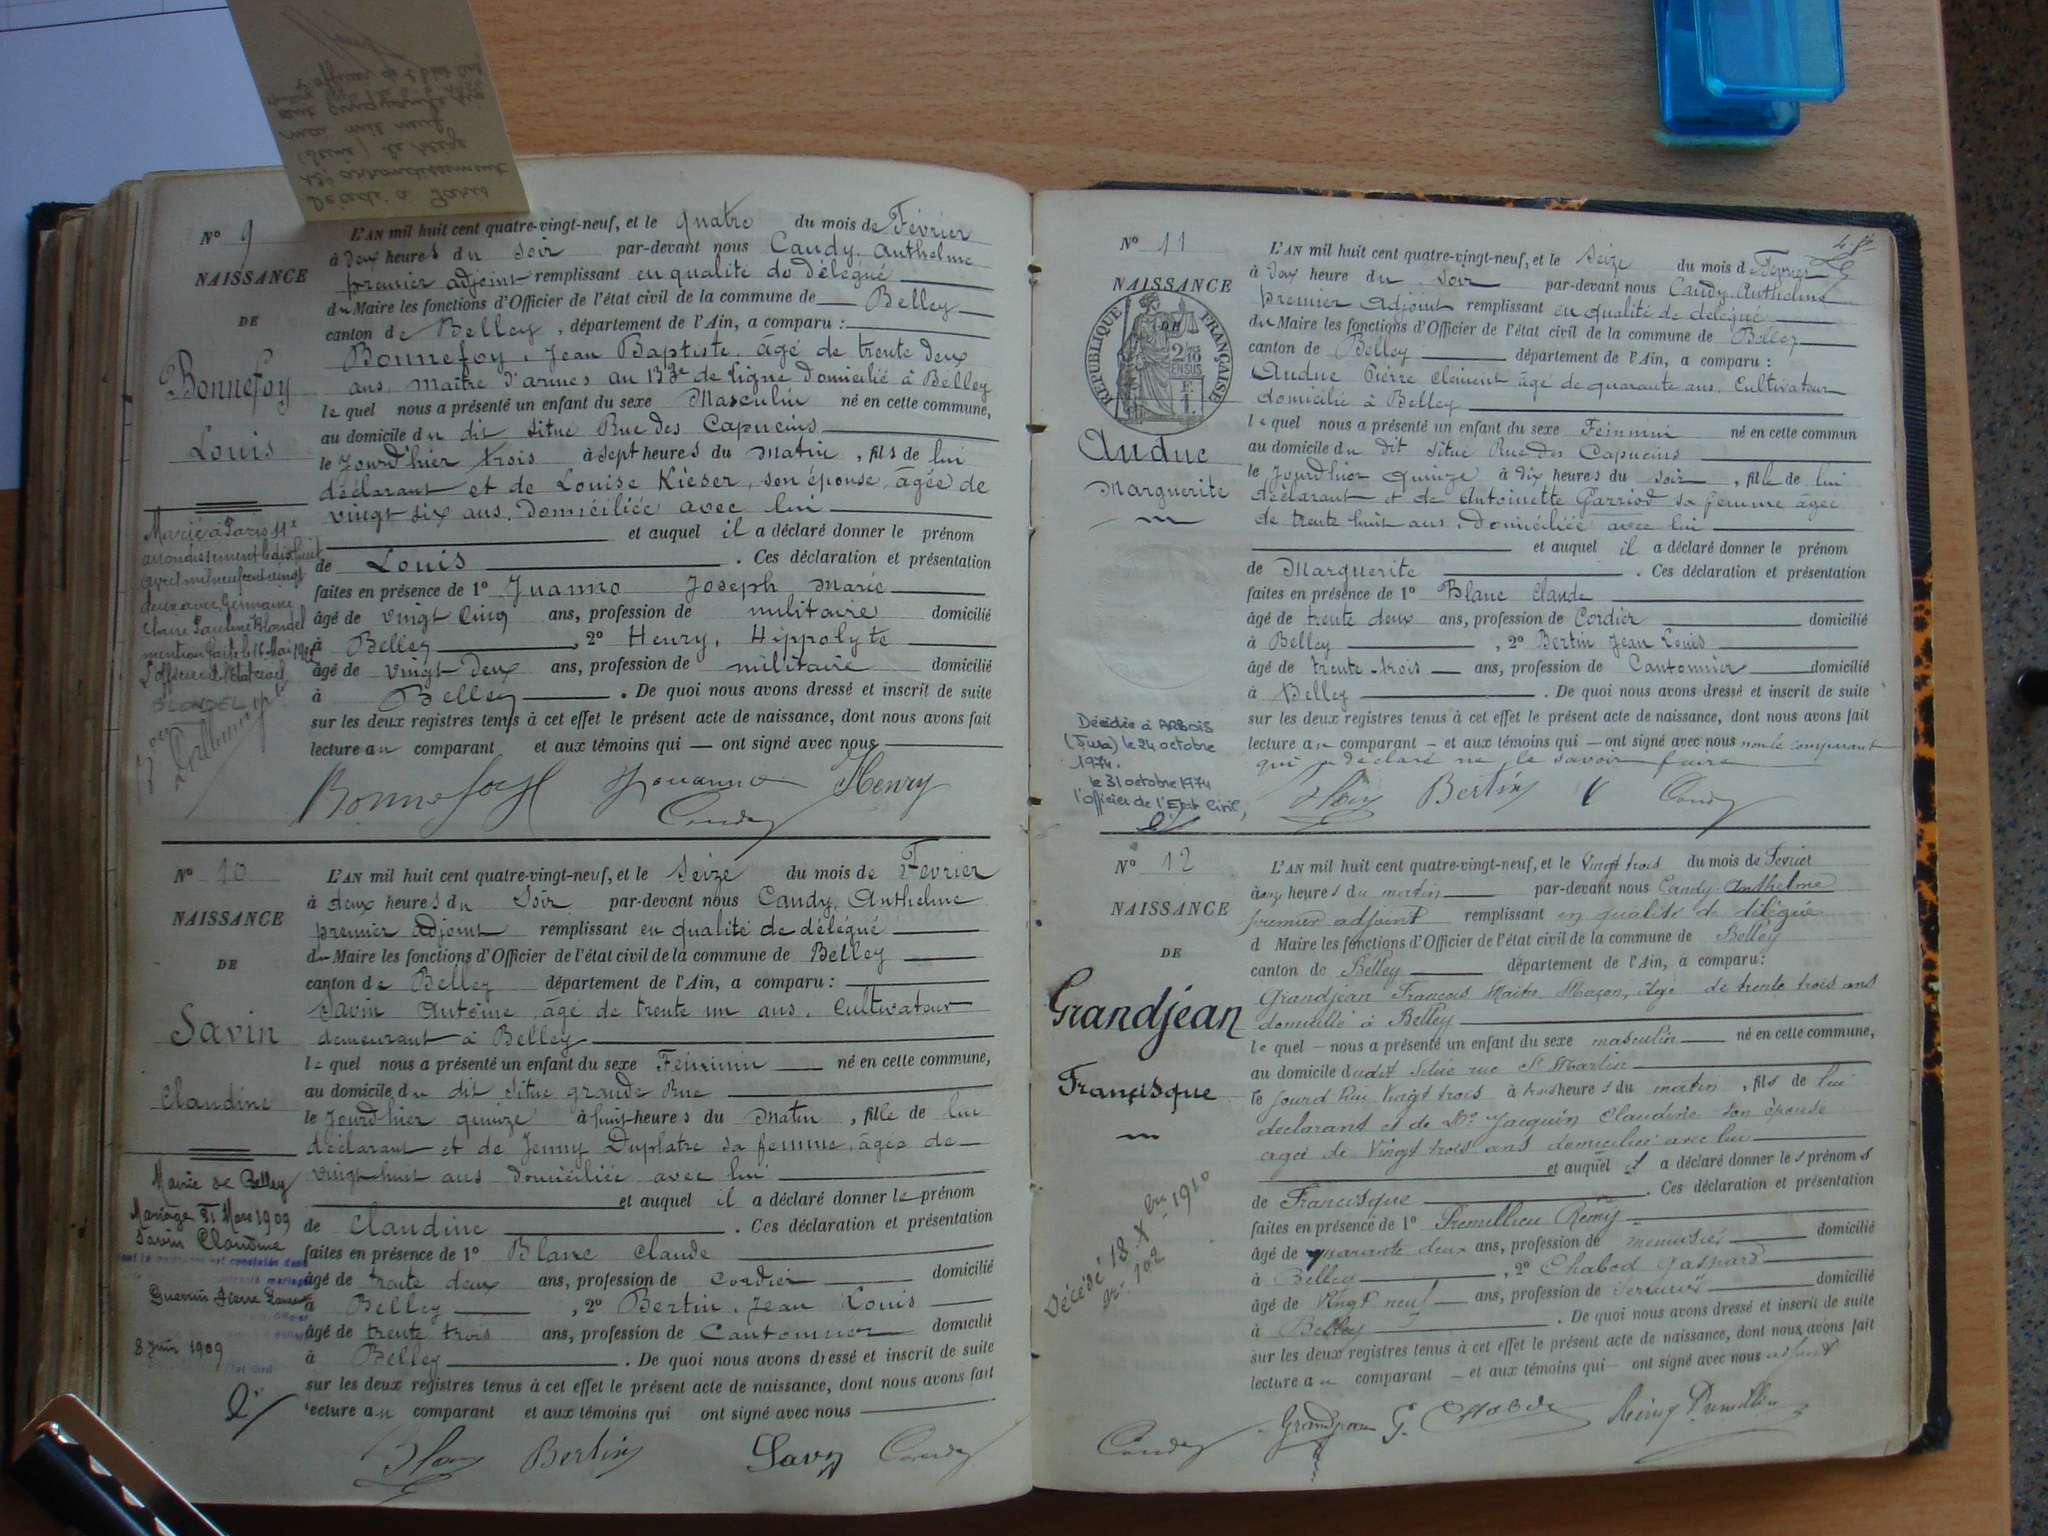 Décédé à Paris
arrondissement
(Seine) le seize
mai mil neuf
cent cinquante six
N° 9
NAISSANCE
DE
Bonnefoy
Louis
Marié à Paris 11e
arrondissement le dix huit
avril mil neuf cent vingt
deux avec Germaine
Claire Pauline Blondel
mention faite le 16 Mai
L'officier de l'Etat civil,
BLONDEL
L'AN mil huit cent quatre-vingt-neuf, et le quatre du mois de Février
à deux heures du soir par-devant nous Candy, Anthelme
premier adjoint remplissant en qualité de délégué
du Maire les fonctions d'Officier de l'état civil de la commune de Belley
canton de Belley, département de l'Ain, a comparu :
Bonnefoy, Jean Baptiste, âgé de trente deux
ans, maître d'armes au 133e de Ligne domicilié à Belley
lequel nous a présenté un enfant du sexe Masculin né en cette commune,
au domicile du dit situé Rue des Capucins
le jourd'hier trois à sept heures du matin, fils de lui
déclarant et de Louise Kieser, son épouse, âgée de
vingt six ans, domiciliée avec lui
et auquel il a déclaré donner le prénom
de Louis. Ces déclaration et présentation
faites en présence de 1° Juanno Joseph Marie
âgé de vingt cinq ans, profession de militaire domicilié
à Belley, 2° Henry, Hippolyte
âgé de vingt deux ans, profession de militaire domicilié
à Belley. De quoi nous avons dressé et inscrit de suite
sur les deux registres tenus à cet effet le présent acte de naissance, dont nous avons fait
lecture au comparant et aux témoins qui — ont signé avec nous
Bonnefoy Jouanno Henry
Candy
N° 10
NAISSANCE
DE
Savin
Claudine
Mairie de Belley
Mariage 31 Mars 1909
Savin Claudine
Guerrin Pierre
8 Juin 1909
L'AN mil huit cent quatre-vingt-neuf, et le Seize du mois de Février
à deux heures du Soir par-devant nous Candy, Anthelme
premier adjoint remplissant en qualité de délégué
du Maire les fonctions d'Officier de l'état civil de la commune de Belley
canton de Belley département de l'Ain, a comparu :
Savin Antoine, âgé de trente un ans, Cultivateur
demeurant à Belley
lequel nous a présenté un enfant du sexe Féminin né en cette commune,
au domicile du dit situé grande Rue
le jourd'hier quinze à huit heures du Matin, fille de lui
déclarant et de Jenny Duplatre sa femme, âgée de
vingt huit ans domiciliée avec lui
et auquel il a déclaré donner le prénom
de Claudine. Ces déclaration et présentation
faites en présence de 1° Blanc Claude
âgé de trente deux ans, profession de Cordier domicilié
à Belley, 2° Bertin, Jean Louis
âgé de trente trois ans, profession de Cantonnier domicilié
à Belley. De quoi nous avons dressé et inscrit de suite
sur les deux registres tenus à cet effet le présent acte de naissance, dont nous avons fait
lecture au comparant et aux témoins qui ont signé avec nous
Blanc Bertin Savin Candy
N° 11
NAISSANCE
DE
RÉPUBLIQUE FRANÇAISE
Auduc
Marguerite
Décédée à ARBOIS
(Jura) le 24 octobre
1974.
le 31 octobre 1974
l'officier de l'Etat Civil,
L'AN mil huit cent quatre-vingt-neuf, et le Seize du mois de Février
à deux heure du soir par-devant nous Candy Anthelme
premier Adjoint remplissant en qualité de délégué
du Maire les fonctions d'Officier de l'état civil de la commune de Belley
canton de Belley département de l'Ain, a comparu :
Auduc Pierre Clément âgé de quarante ans, Cultivateur
domicilié à Belley
lequel nous a présenté un enfant du sexe Féminin né en cette commun
au domicile du dit situé Rue des Capucins
le jourd'hier quinze à dix heures du soir, fille de lui
déclarant et de Antoinette Parriod sa femme âgée
de trente huit ans, domiciliée avec lui
et auquel il a déclaré donner le prénom
de Marguerite. Ces déclaration et présentation
faites en présence de 1° Blanc Claude
âgé de trente deux ans, profession de Cordier domicilié
à Belley, 2° Bertin Jean Louis
âgé de trente trois ans, profession de Cantonnier domicilié
à Belley. De quoi nous avons dressé et inscrit de suite
sur les deux registres tenus à cet effet le présent acte de naissance, dont nous avons fait
lecture au comparant — et aux témoins qui — ont signé avec nous non le comparant
qui a déclaré ne le savoir faire
Blanc Bertin Candy
N° 12
NAISSANCE
DE
Grandjean
Francisque
Décédé 18 Xbre 1910
N° 102
L'AN mil huit cent quatre-vingt-neuf, et le Vingt trois du mois de Février
à onze heures du matin par-devant nous Candy Anthelme
premier adjoint remplissant en qualité de délégué
d Maire les fonctions d'Officier de l'état civil de la commune de Belley
canton de Belley département de l'Ain, a comparu :
Grandjean François Maître Maçon, âgé de trente trois ans
domicilié à Belley
lequel — nous a présenté un enfant du sexe masculin né en cette commune,
au domicile dudit situé rue St Martin
le jourd'hui vingt trois à trois heures du matin, fils de lui
déclarant et de De Jacquin Claudine son épouse
agée de Vingt trois ans domiciliée avec lui
et auquel il a déclaré donner les prénoms
de Francisque. Ces déclaration et présentation
faites en présence de 1° Premillieu Rémy
âgé de quarante deux ans, profession de menuisier domicilié
à Belley, 2° Chabod Gaspard
âgé de Vingt neuf ans, profession de Serrurier domicilié
à Belley. De quoi nous avons dressé et inscrit de suite
sur les deux registres tenus à cet effet le présent acte de naissance, dont nous avons fait
lecture au comparant — et aux témoins qui — ont signé avec nous adjoint
Candy Grandjean G. Chabod Rémy Premillieu